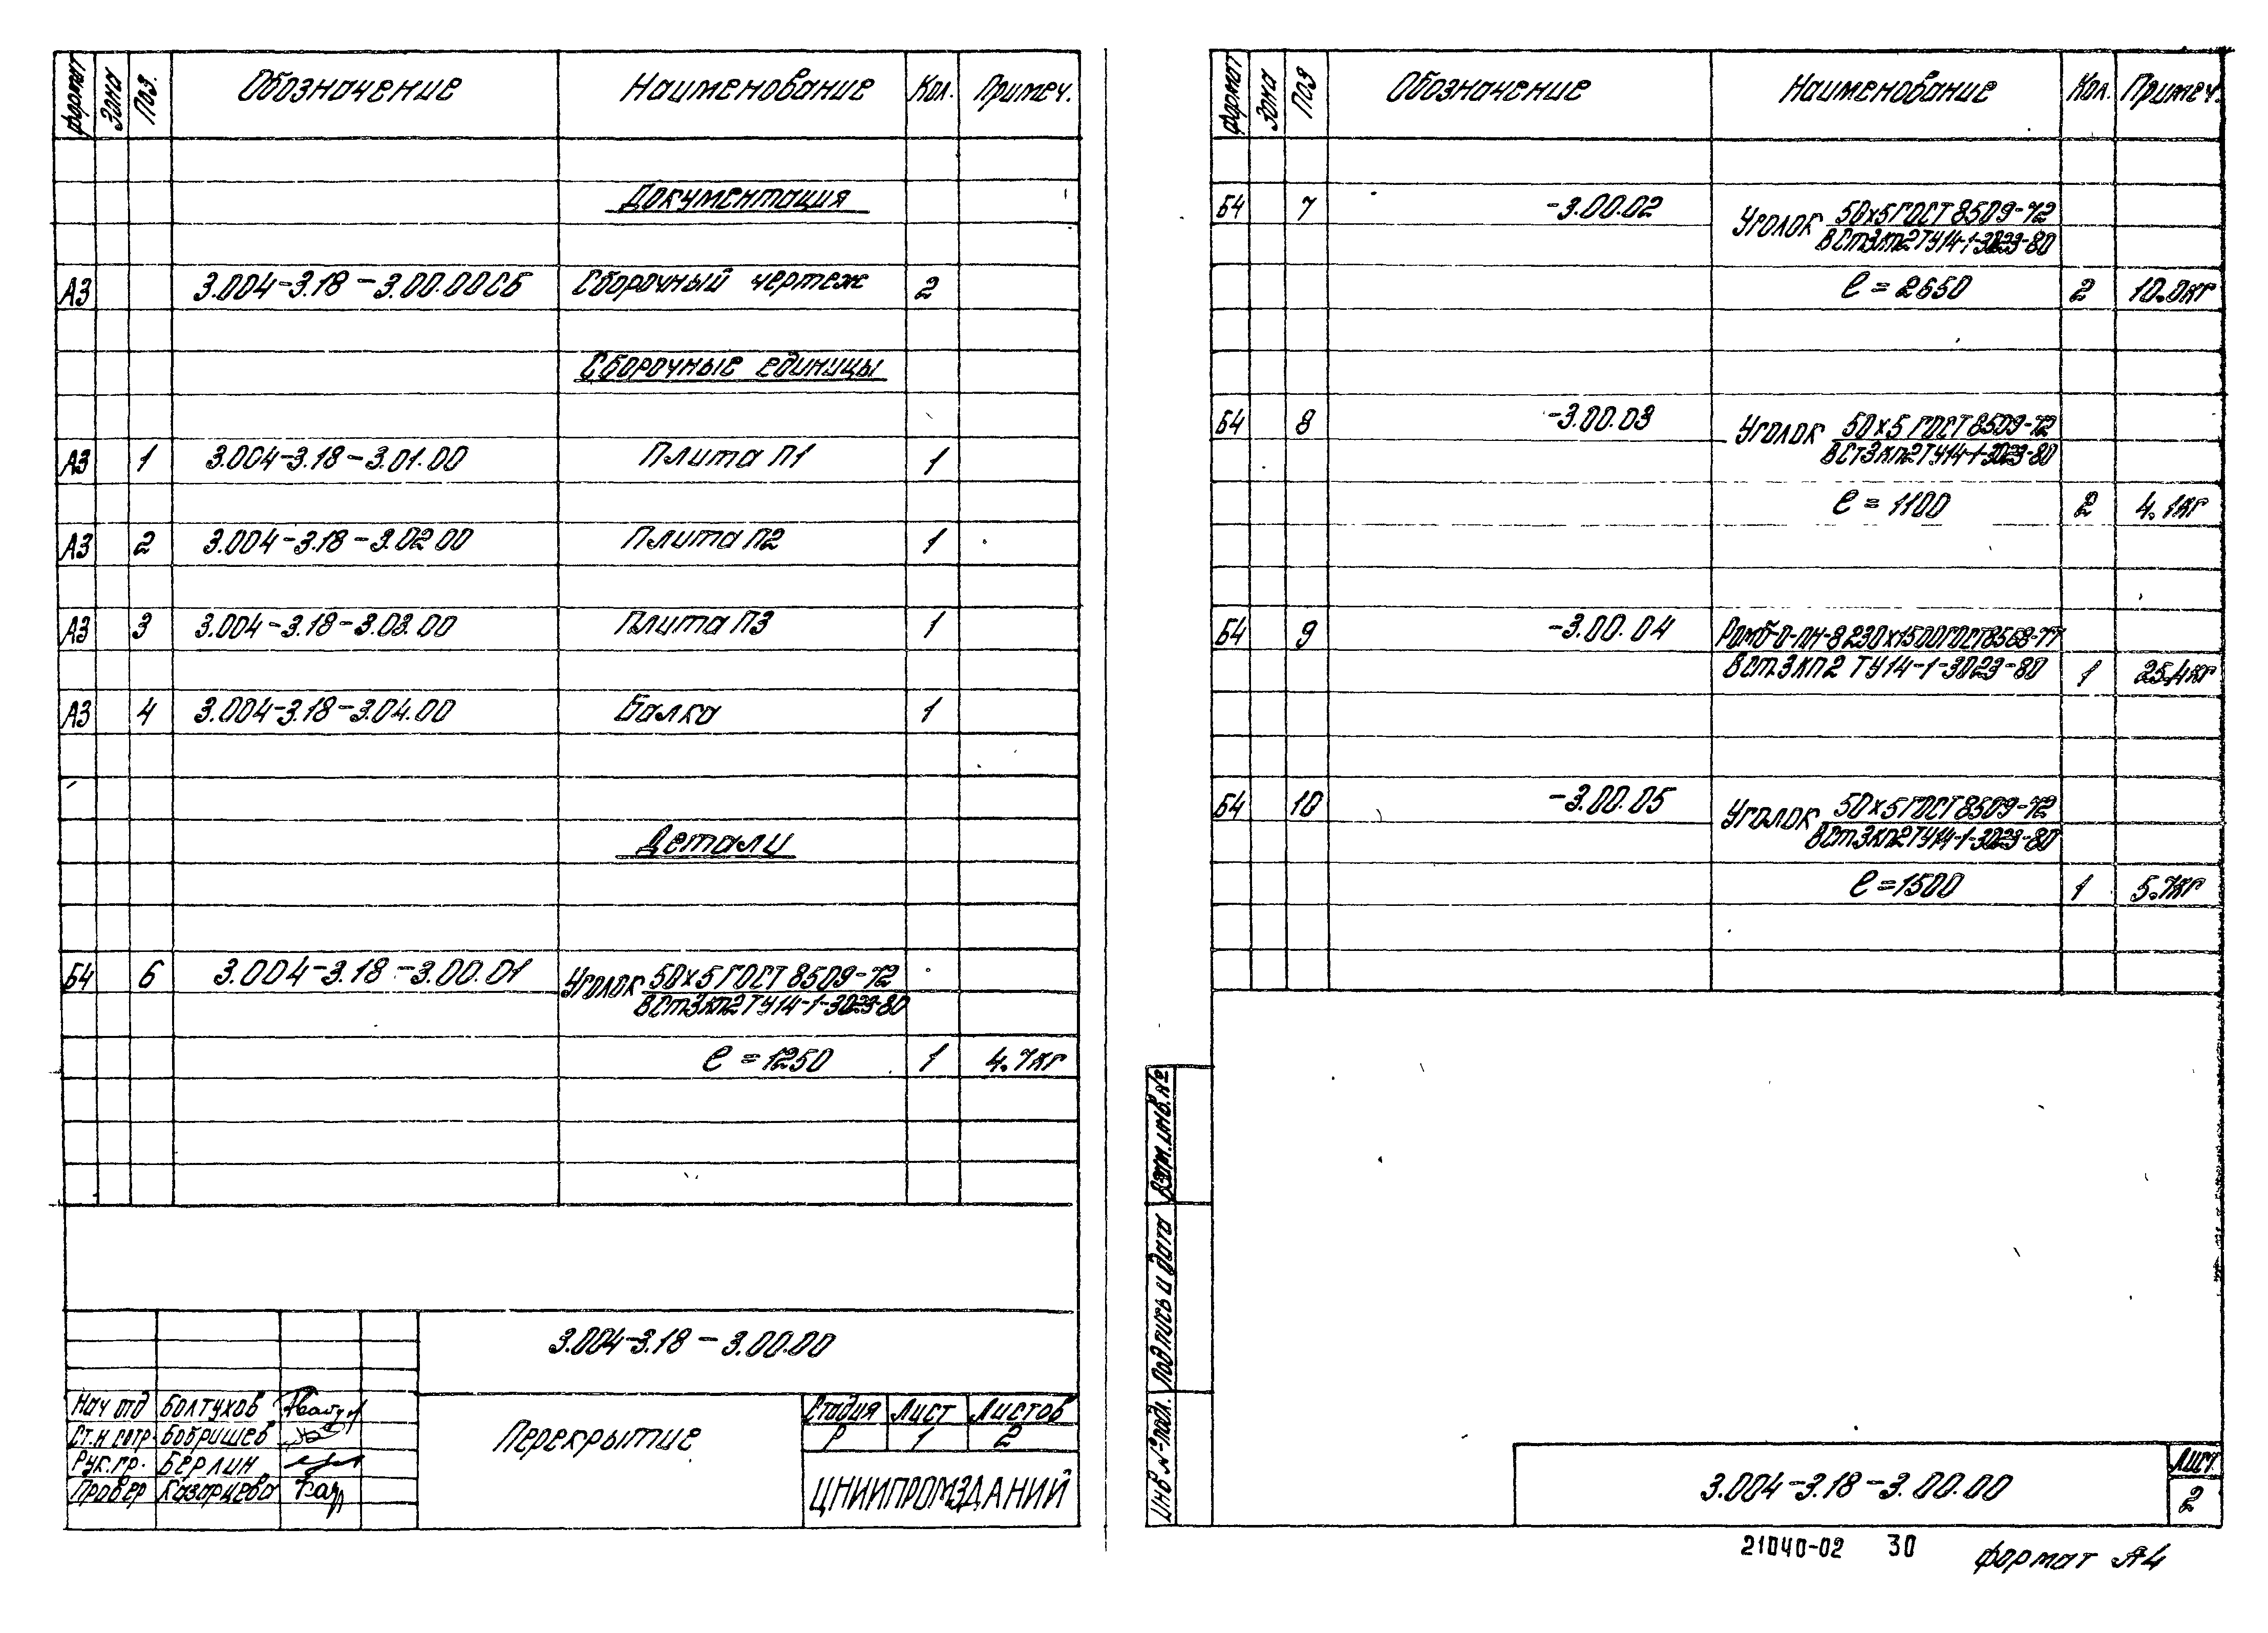 формат Зона Поз. Обозначение Наименование Кол. Примеч.
Документация
А3 3.004-3.18-3.00.00СБ Сборочный чертеж 2
Сборочные единицы
А3 1 3.004-3.18-3.01.00 Плита П1 1
А3 2 3.004-3.18-3.02.00 Плита П2 1
А3 3 3.004-3.18-3.03.00 Плита П3 1
А3 4 3.004-3.18-3.04.00 Балка 1
Детали
Б4 6 3.004-3.18-3.00.01 Уголок 50х5 ГОСТ 8509-72
ВСт3кп2 ТУ14-1-3023-80
ℓ = 1250 1 4.7кг
3.004-3.18-3.00.00
Нач отд Болтухов
Ст.н сотр. Бобришев
Рук.гр. Берлин
Провер Казарцева
Перекрытие
Стадия Лист Листов
Р 1 2
ЦНИИПРОМЗДАНИЙ
формат Зона Поз Обозначение Наименование Кол. Примеч.
Б4 7 -3.00.02 Уголок 50х5 ГОСТ 8509-72
ВСт3кп2 ТУ14-1-3023-80
ℓ = 2650 2 10.0кг
Б4 8 -3.00.03 Уголок 50х5 ГОСТ 8509-72
ВСт3кп2 ТУ14-1-3023-80
ℓ = 1100 2 4.1кг
Б4 9 -3.00.04 Ромб-О-ПН-8 230х1500 ГОСТ 8568-77
ВСт.3кп2 ТУ14-1-3023-80 1 25.4кг
Б4 10 -3.00.05 Уголок 50х5 ГОСТ 8509-72
ВСт.3кп2 ТУ14-1-3023-80
ℓ = 1500 1 5.7кг
Взам. инв. №
Подпись и дата
Инв № подл.
3.004-3.18-3.00.00
Лист
2
21040-02 30 формат А4